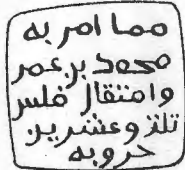 مما امر به
محمد بن عمر
وامتقال فلس
تلث وعشرين
حروبه